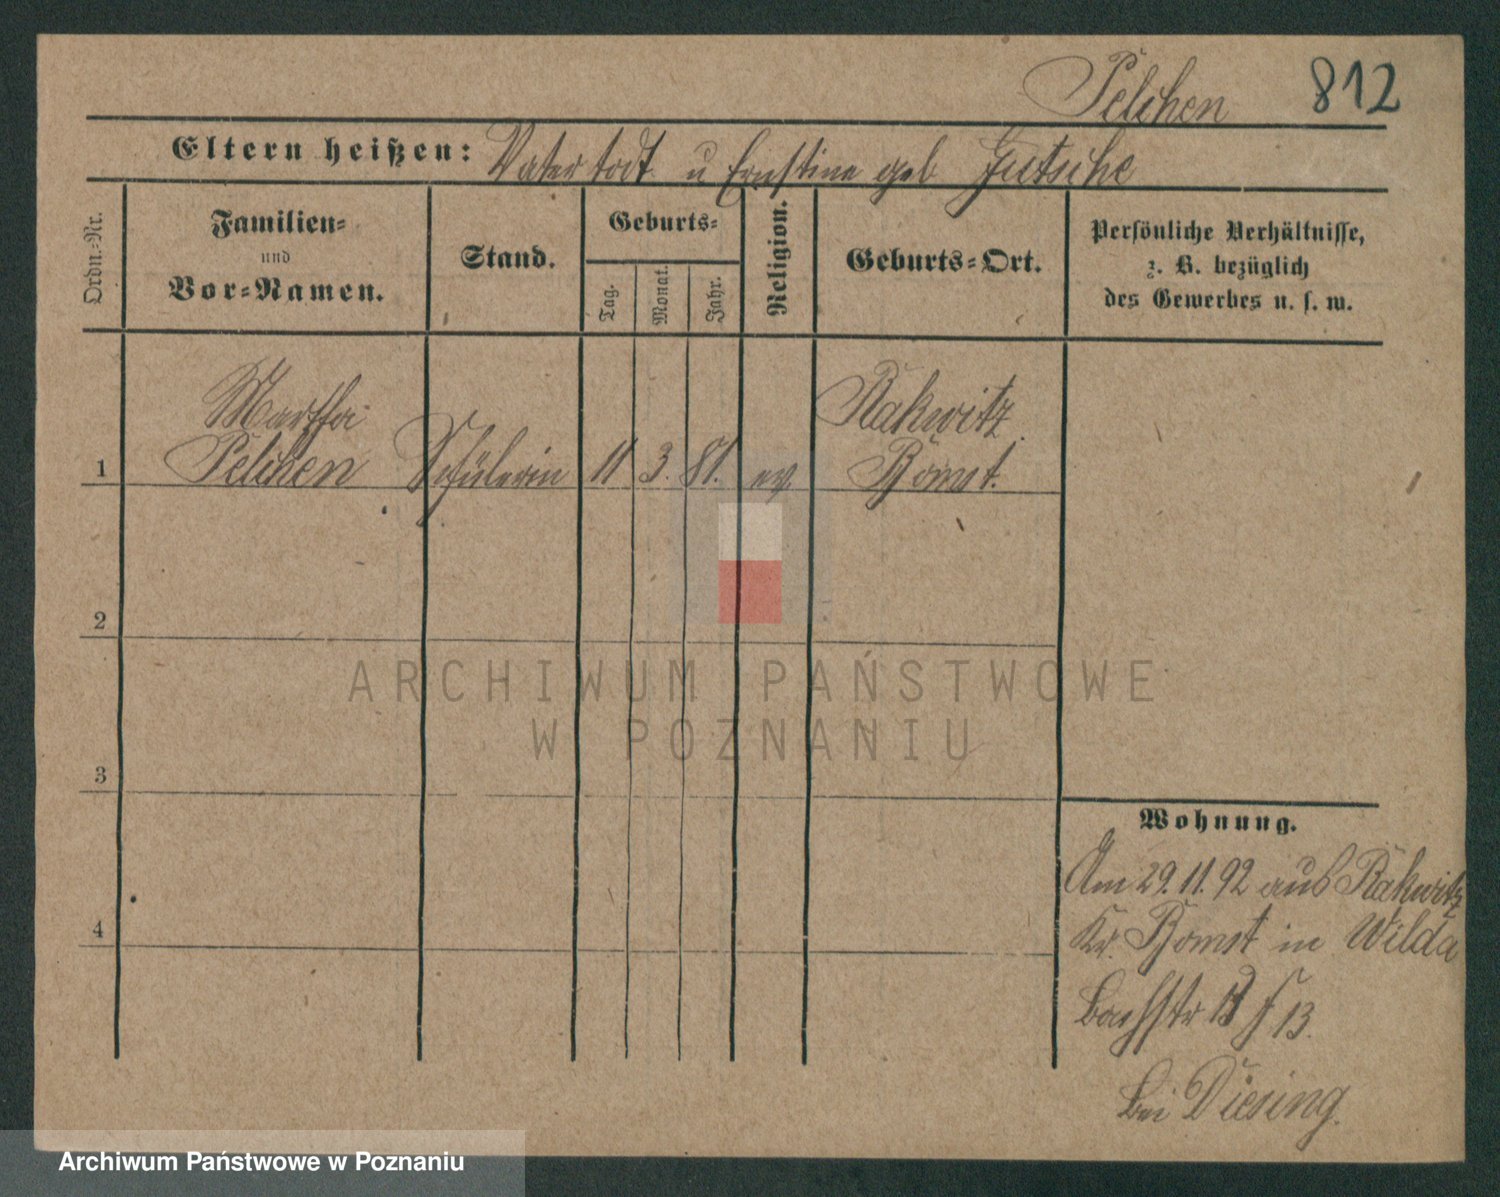 Pelchen 812
Eltern heißen: Vater todt u Ernstine geb Gutsche
Ordn.-Nr.
Familien-
und
Vor-Namen.
Stand.
Geburts-
Tag.
Monat.
Jahr.
Religion.
Geburts-Ort.
Persönliche Verhältnisse,
z. B. bezüglich
des Gewerbes u. s. w.
Martha Rakwitz
1 Pelchen Schülerin 11 3. 81. ev. Bomst.
2
3
4
Wohnung.
Am 29.11.92 aus Rakwitz
Kr. Bomst in Wilda
Bachstr 13
bei Diesing.
ARCHIWUM PAŃSTWOWE
W POZNANIU
Archiwum Państwowe w Poznaniu